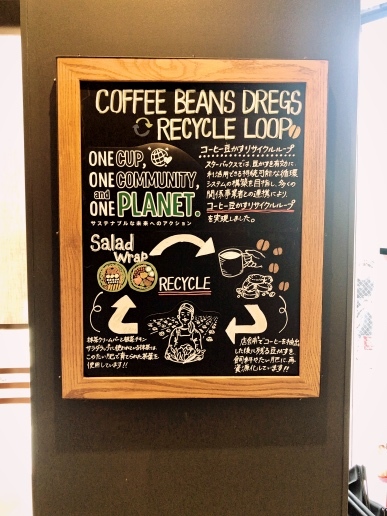 COFFEE BEANS DREGS
RECYCLE LOOP
ONE CUP,
ONE COMMUNITY,
and
ONE PLANET.
サステナブルな未来へのアクション
コーヒー豆かすリサイクルループ
スターバックスでは、豆かすを有効に、
利活用できる持続可能な循環
システムの構築を目指し、多くの
関係事業者との連携により、
コーヒー豆かすリサイクルループ
を実現しました。
Salad
Wrap
RECYCLE
サラダラップに使われている
このたい肥で育てられた野菜を
使用しています!!
店舗でコーヒーを抽出
した後に残る豆かすを
飼料やたい肥に、再
資源化しています!!